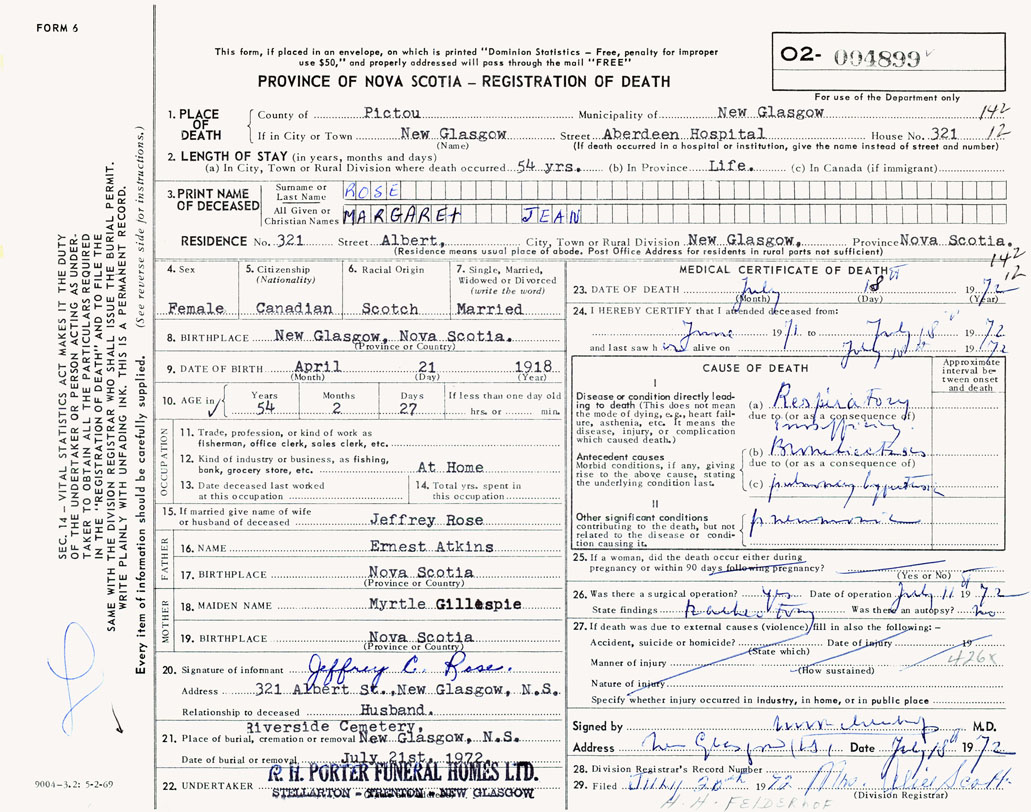 FORM 6
This form, if placed in an envelope, on which is printed "Dominion Statistics – Free, penalty for improper
use $50," and properly addressed will pass through the mail "FREE"
PROVINCE OF NOVA SCOTIA – REGISTRATION OF DEATH
O2- 004899
For use of the Department only
SEC. 14 – VITAL STATISTICS ACT MAKES IT THE DUTY
OF THE UNDERTAKER OR PERSON ACTING AS UNDER-
TAKER TO OBTAIN ALL THE PARTICULARS REQUIRED
IN THE "REGISTRATION OF DEATH" AND FILE THE
SAME WITH THE DIVISION REGISTRAR WHO SHALL ISSUE THE BURIAL PERMIT.
WRITE PLAINLY WITH UNFADING INK. THIS IS A PERMANENT RECORD.
Every item of information should be carefully supplied. (See reverse side for instructions.)
1. PLACE OF DEATH
County of Pictou Municipality of New Glasgow 142
If in City or Town New Glasgow Street Aberdeen Hospital House No. 321 12
(Name) (If death occurred in a hospital or institution, give the name instead of street and number)
2. LENGTH OF STAY (in years, months and days)
(a) In City, Town or Rural Division where death occurred 54 yrs. (b) In Province Life. (c) In Canada (if immigrant)
3. PRINT NAME OF DECEASED
Surname or Last Name ROSE
All Given or Christian Names MARGARET JEAN
RESIDENCE No. 321 Street Albert, City, Town or Rural Division New Glasgow, Province Nova Scotia.
(Residence means usual place of abode. Post Office Address for residents in rural parts not sufficient)
142
12
4. Sex 5. Citizenship (Nationality) 6. Racial Origin 7. Single, Married, Widowed or Divorced (write the word)
Female Canadian Scotch Married
8. BIRTHPLACE New Glasgow, Nova Scotia.
(Province or Country)
9. DATE OF BIRTH April 21 1918
(Month) (Day) (Year)
10. AGE in Years Months Days If less than one day old
54 2 27 hrs. or min.
OCCUPATION
11. Trade, profession, or kind of work as
fisherman, office clerk, sales clerk, etc.
12. Kind of industry or business, as fishing,
bank, grocery store, etc. At Home
13. Date deceased last worked
at this occupation
14. Total yrs. spent in
this occupation
15. If married give name of wife
or husband of deceased Jeffrey Rose
FATHER
16. NAME Ernest Atkins
17. BIRTHPLACE Nova Scotia
(Province or Country)
MOTHER
18. MAIDEN NAME Myrtle Gillespie
19. BIRTHPLACE Nova Scotia
(Province or Country)
20. Signature of informant Jeffrey C. Rose.
Address 321 Albert St.,New Glasgow, N.S.
Relationship to deceased Husband.
Riverside Cemetery,
21. Place of burial, cremation or removal New Glasgow, N.S.
Date of burial or removal July 21st, 1972
22. UNDERTAKER R. H. PORTER FUNERAL HOMES LTD.
STELLARTON - TRENTON - NEW GLASGOW
9004-3.2: 5-2-69
MEDICAL CERTIFICATE OF DEATH
23. DATE OF DEATH July 18 1972
(Month) (Day) (Year)
24. I HEREBY CERTIFY that I attended deceased from:
June 1971 to July 18th 1972
and last saw her alive on July 18th 1972
CAUSE OF DEATH
Approximate interval between onset and death
I
Disease or condition directly leading to death (This does not mean the mode of dying, e.g., heart failure, asthenia, etc. It means the disease, injury, or complication which caused death.)
(a) Respiratory
due to (or as a consequence of)
Insufficiency
Antecedent causes
Morbid conditions, if any, giving rise to the above cause, stating the underlying condition last.
(b) Bronchiectasis
due to (or as a consequence of)
(c) pulmonary hypertension
II
Other significant conditions
contributing to the death, but not related to the disease or condition causing it.
pneumonia
25. If a woman, did the death occur either during
pregnancy or within 90 days following pregnancy?
(Yes or No)
26. Was there a surgical operation? Yes Date of operation July 11 1972
State findings Was there an autopsy? No
27. If death was due to external causes (violence) fill in also the following: –
Accident, suicide or homicide? Date of injury 19
(State which)
Manner of injury 426x
(How sustained)
Nature of injury
Specify whether injury occurred in industry, in home, or in public place
Signed by M.D.
Address New Glasgow N.S. Date July 18th 1972
28. Division Registrar's Record Number
29. Filed July 20th 1972 Mrs. Scott
(Division Registrar)
H. H. FELDERHOF